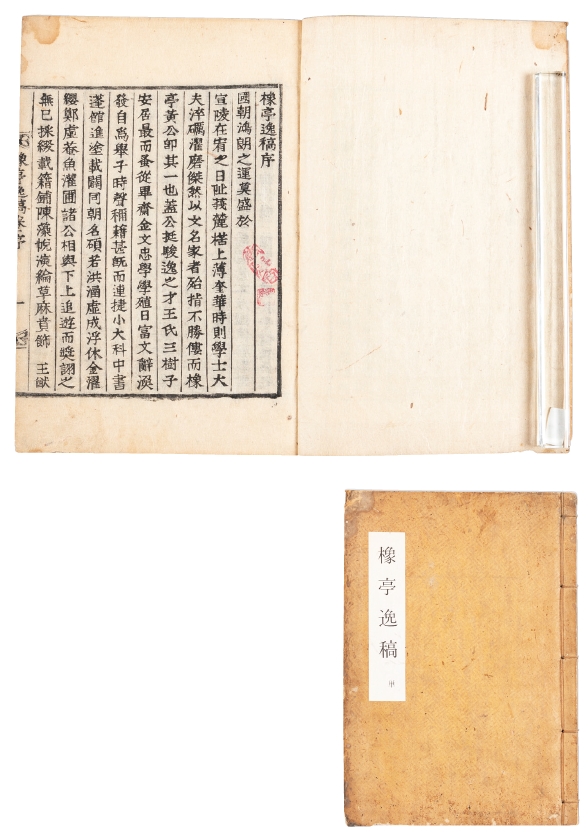 橡亭逸稿序
國朝鴻朗之運莫盛於
宣陵在宥之日趾莪麓楛上薄奎華時則學士大
夫淬礪濯磨傑然以文名家者殆指不勝僂而橡
亭黃公卽其一也蓋公挺駿逸之才王氏三樹子
安居最而蚤從畢齋金文忠學學殖日富文辭渙
發自爲擧子時聲稱藉甚旣而連捷小大科中書
蓬館進塗載闢同朝名碩若洪涵虛成浮休金濯
纓鄭虛菴魚灌圃諸公相與下上追遊而獎詡之
無已掞綴載籍鋪陳藻帨演綸草麻賁飾 王猷
橡亭逸稿 序
一
橡亭逸稿